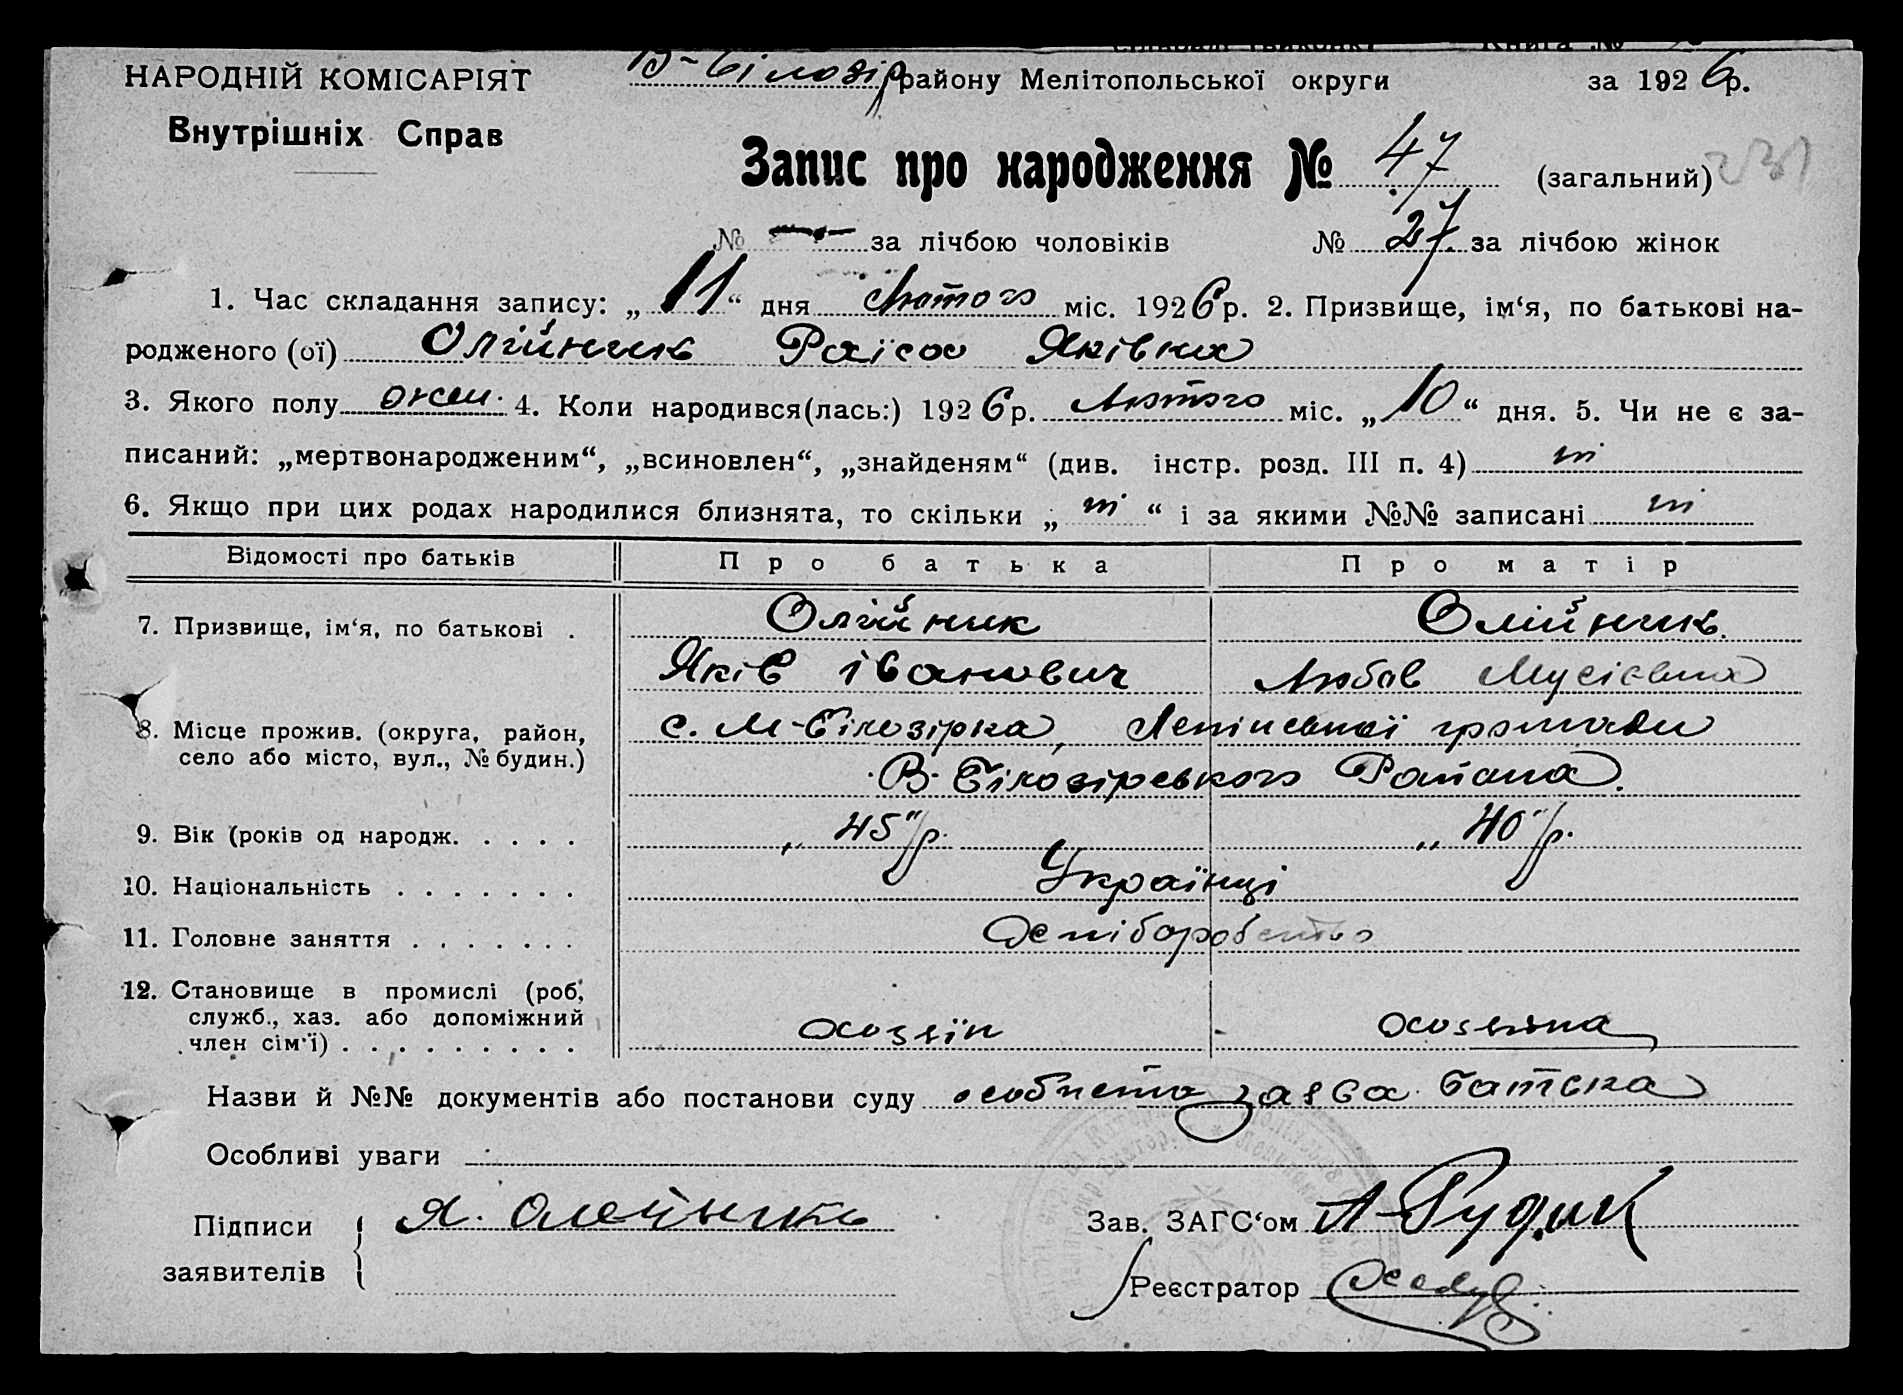 НАРОДНІЙ КОМІСАРІЯТ
Внутрішніх Справ
В-Білозір району Мелітопольської округи за 1926 р.
Запис про народження № 47 (загальний) 231
№ — за лічбою чоловіків № 27 за лічбою жінок
1. Час складання запису: „11“ дня Лютого міс. 1926 р. 2. Призвище, ім‘я, по батькові на-
родженого (ої) Олійник Раїса Яківна
3. Якого полу жен. 4. Коли народився(лась:) 1926 р. Лютого міс. „10“ дня. 5. Чи не є за-
писаний: „мертвонародженим“, „всиновлен“, „знайденям“ (див. інстр. розд. III п. 4) ні
6. Якщо при цих родах народилися близнята, то скільки „ні“ і за якими №№ записані ні
Відомості про батьків Про батька Про матір
7. Призвище, ім‘я, по батькові . Олійник Олійник
Яків Іванович Любов Мусієвна
8. Місце прожив. (округа, район, с. М-Білозірка, громади
село або місто, вул., № будин.) В-Білозірського Района.
9. Вік (років од народж. . . . . „45“ р. „40“ р.
10. Національність . . . . . . . Українці
11. Головне заняття . . . . . . .
12. Становище в промислі (роб,
служб., хаз. або допоміжний
член сім‘ї) . . . . . . . . . хозяїн хозяйка
Назви й №№ документів або постанови суду особиста заява батька
Особливі уваги
Підписи Я. Олейник Зав. ЗАГС‘ом А Рудик
заявителів
Реєстратор